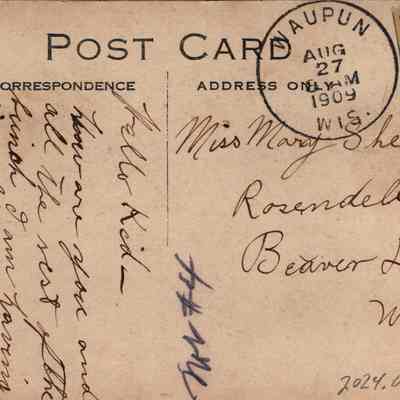 POST CARD
ORRESPONDENCE
ADDRESS ONLY
WAUPUN
AUG
27
8 AM
1909
WIS.
Hello Kid—
How are you and
all the rest of the
bunch I am having
Miss Mary She
Rosendel
Beaver
W
2024.0